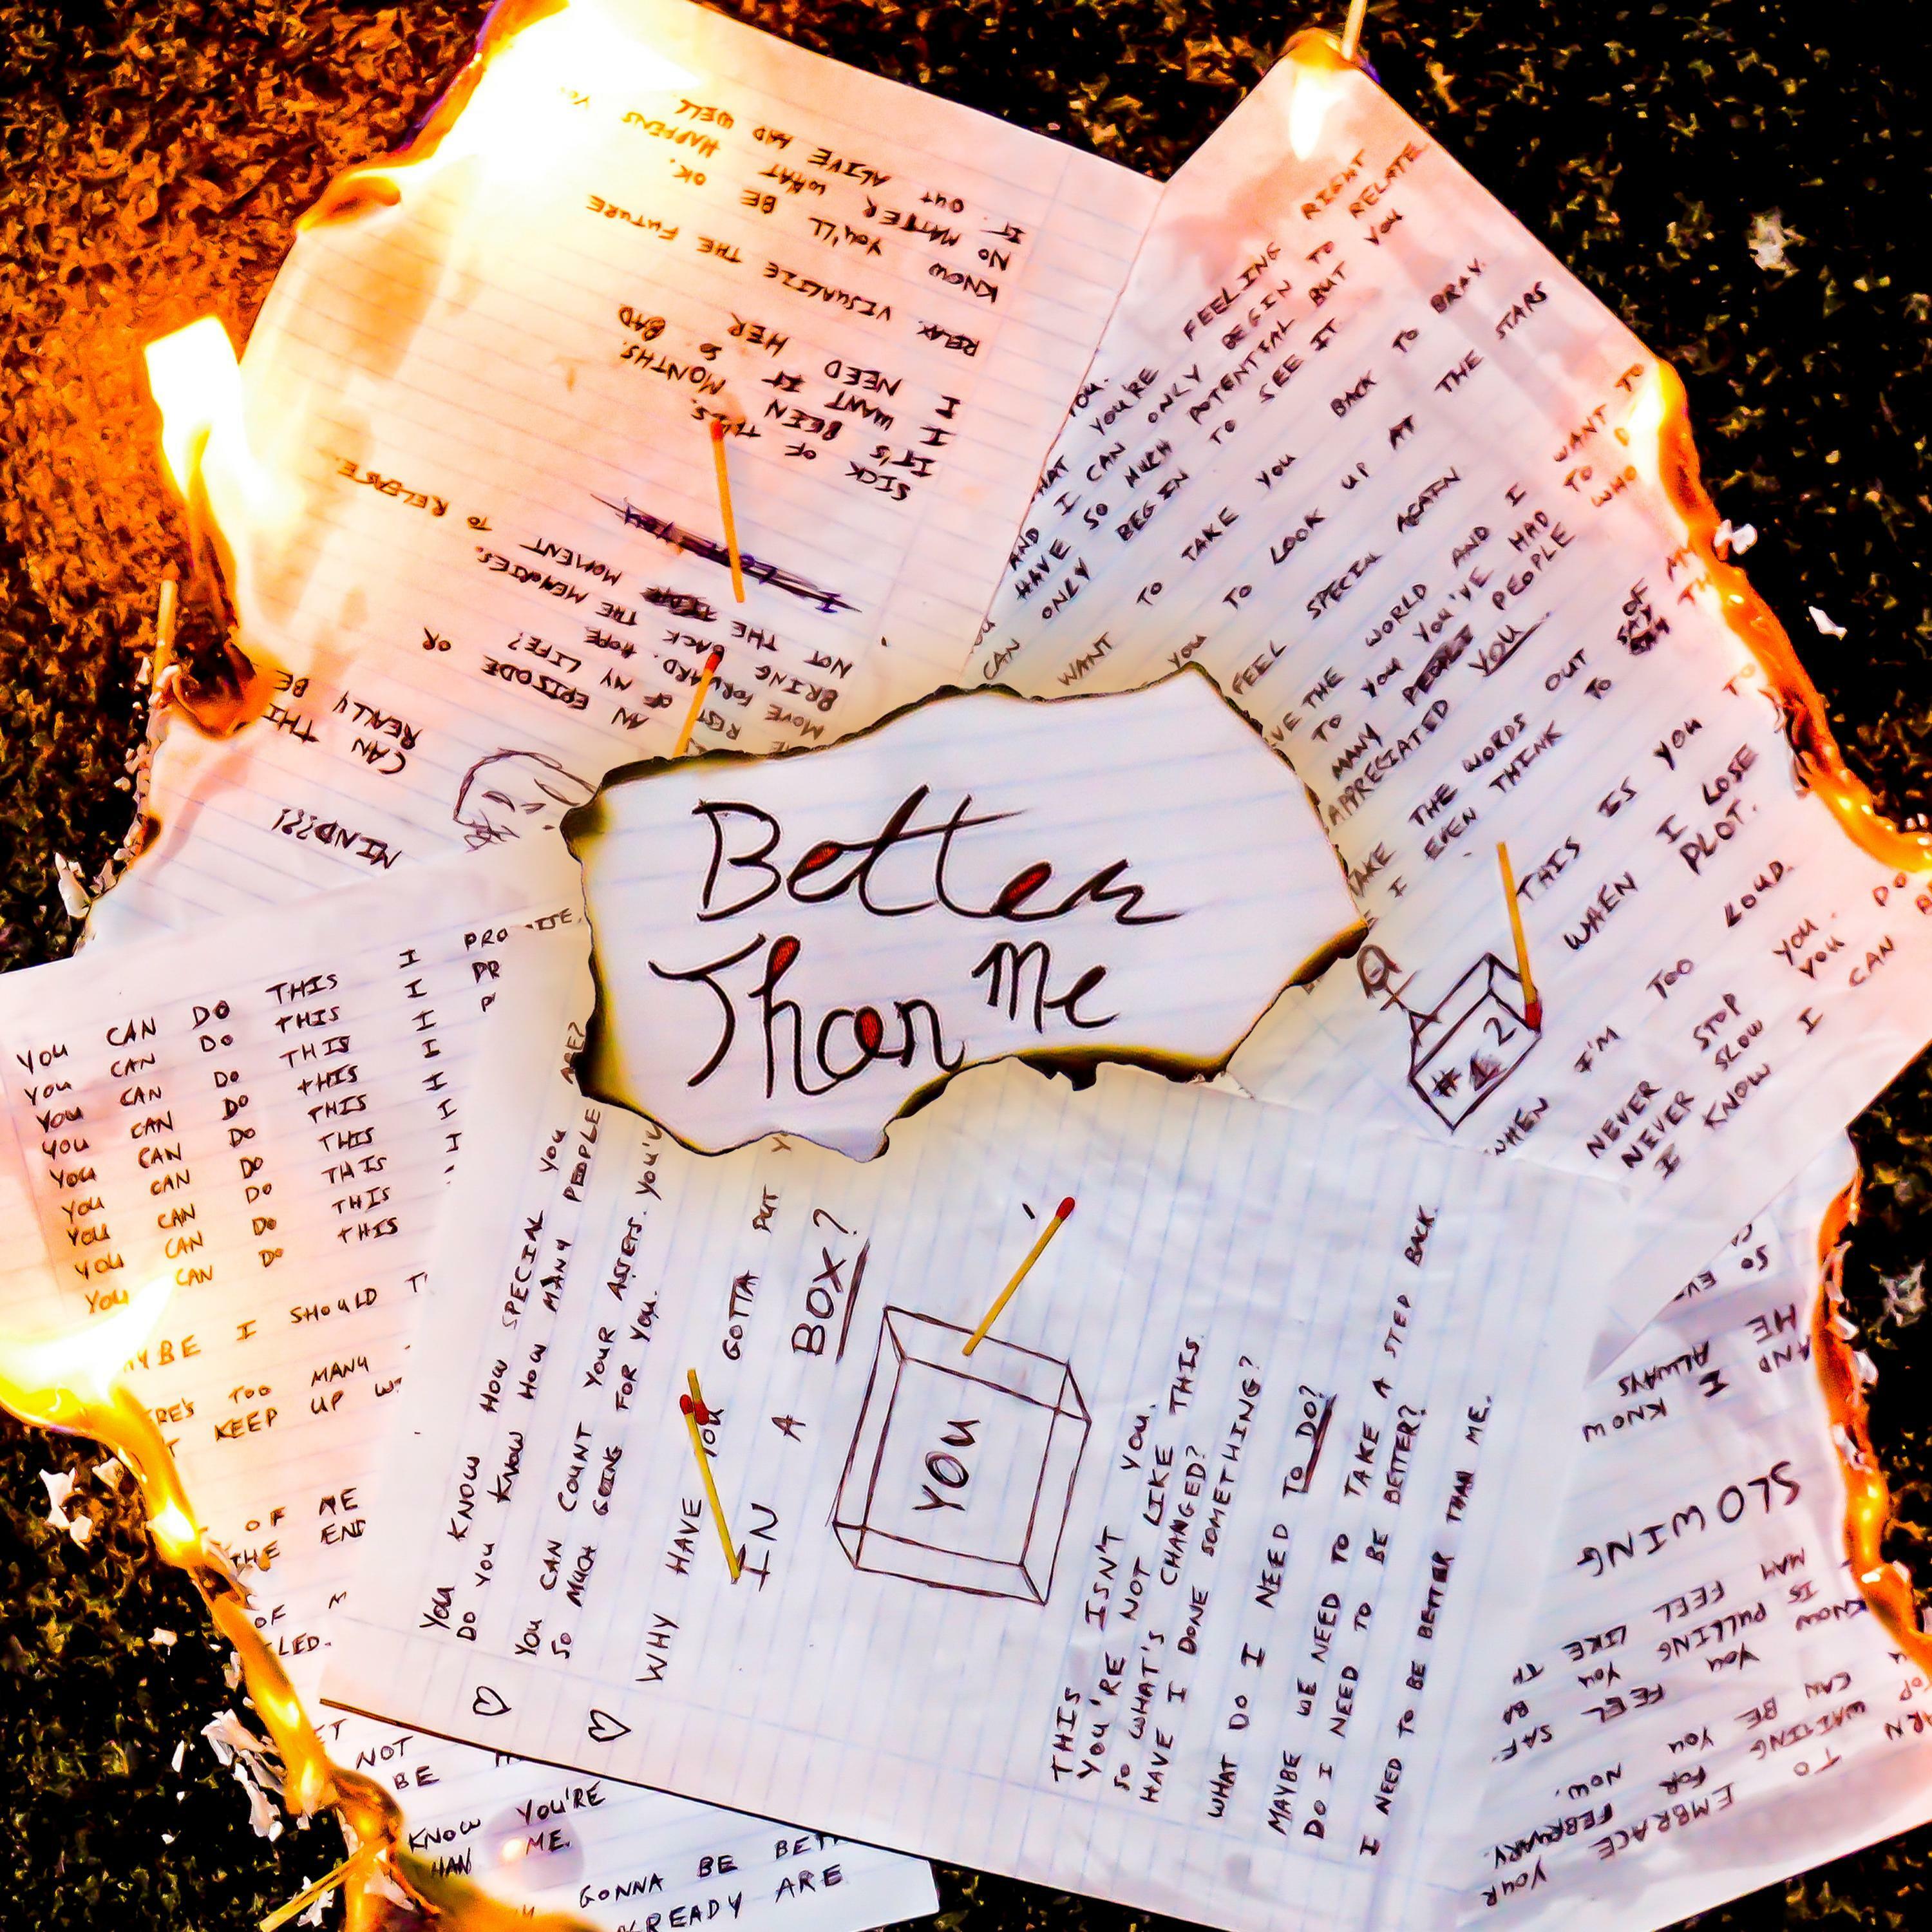 Better
Than Me
OUT ALIVE HAD WELL
NO MATTER WHAT HAPPENS
KNOW YOU'LL BE OK.
RELAX. VISUALIZE THE FUTURE
I NEED HER
I WANT IT SO BAD
IT'S BEEN MONTHS.
SICK OF THIS.
I LOVE YOU
NOT THE TIME MOMENT TO RELEASE.
BRING BACK THE MEMORIES.
MOVE FORWARD. HOPE
REST OF MY LIFE?
AN EPISODE OR
CAN THI
REALLY BE
MIND???!
YOU.
HAT YOU'RE FEELING RIGHT
AND I CAN ONLY BEGIN TO RELATE
HAVE SO MUCH POTENTIAL BUT YOU
ONLY BEGIN TO SEE IT
YOU
CAN
WANT TO TAKE YOU BACK TO BRAY.
YOU TO LOOK UP AT THE STARS
FEEL SPECIAL AGAIN
VE THE WORLD AND I WANT TO
TO YOU YOU'VE HAD TO
MANY PEOPLE PEOPLE WHO
APPRECIATED YOU
TAKE THE WORDS OUT OF
E I EVEN THINK TO SAY
THIS IS YOU TO
WHEN I LOSE
PLOT.
#1 2
WHEN I'M TOO LOUD.
NEVER STOP YOU. DO
NEVER SLOW YOU
I KNOW I CAN
YOU CAN DO THIS I PROMISE.
YOU CAN DO THIS I PR
YOU CAN DO THIS I P
YOU CAN DO THIS I
YOU CAN DO THIS I
YOU CAN DO THIS I
YOU CAN DO THIS
YOU CAN DO THIS
YOU CAN DO THIS
YBE I SHOULD T
ERE'S TOO MANY
T KEEP UP W
OF ME
THE END
OF M
LED.
NOT
BE
KNOW YOU'RE
HAN ME.
GONNA BE BET
ALREADY ARE
YOU KNOW HOW SPECIAL YOU ARE?
DO YOU KNOW HOW MANY PEOPLE
YOU CAN COUNT YOUR ASSETS. YOU'V
SO MUCH GOING FOR YOU.
WHY HAVE YOU GOTTA PUT Y
IN A BOX?
YOU
THIS ISN'T YOU.
YOU'RE NOT LIKE THIS.
SO WHAT'S CHANGED?
HAVE I DONE SOMETHING?
WHAT DO I NEED TO DO?
MAYBE WE NEED TO TAKE A STEP BACK.
DO I NEED TO BE BETTER?
I NEED TO BE BETTER THAN ME.
SO EV
AND HE
I ALWAYS
KNOW
SLOWING
MAY FEEL LIKE TH
IS PULLING YOU
KNOW YOU FEEL SAF
CAN BE YOU NOW.
WAITING FOR FEBRUARY.
TO EMBRACE YOUR